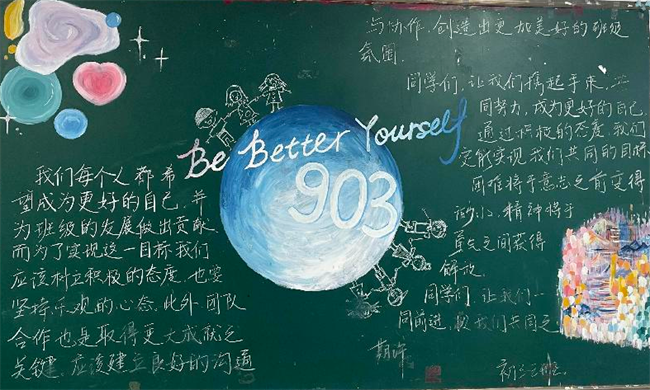 Be Better Yourself
903
我们每个人都希
望成为更好的自己,并
为班级的发展做出贡献
而为了实现这一目标我们
应该树立积极的态度,也要
坚持乐观的心态.此外团队
合作也是取得更大成就之
关键,应该建立良好的沟通
与协作,创造出更加美好的班级
氛围.
同学们,让我们携起手来,共
同努力,成为更好的自己
通过积极的态度,我们
定能实现我们共同的目标
困难将于意志之前变得
渺小,精神将于
之间获得
解放.
同学们让我们一
同前进,我们共同之
期许
初三三班